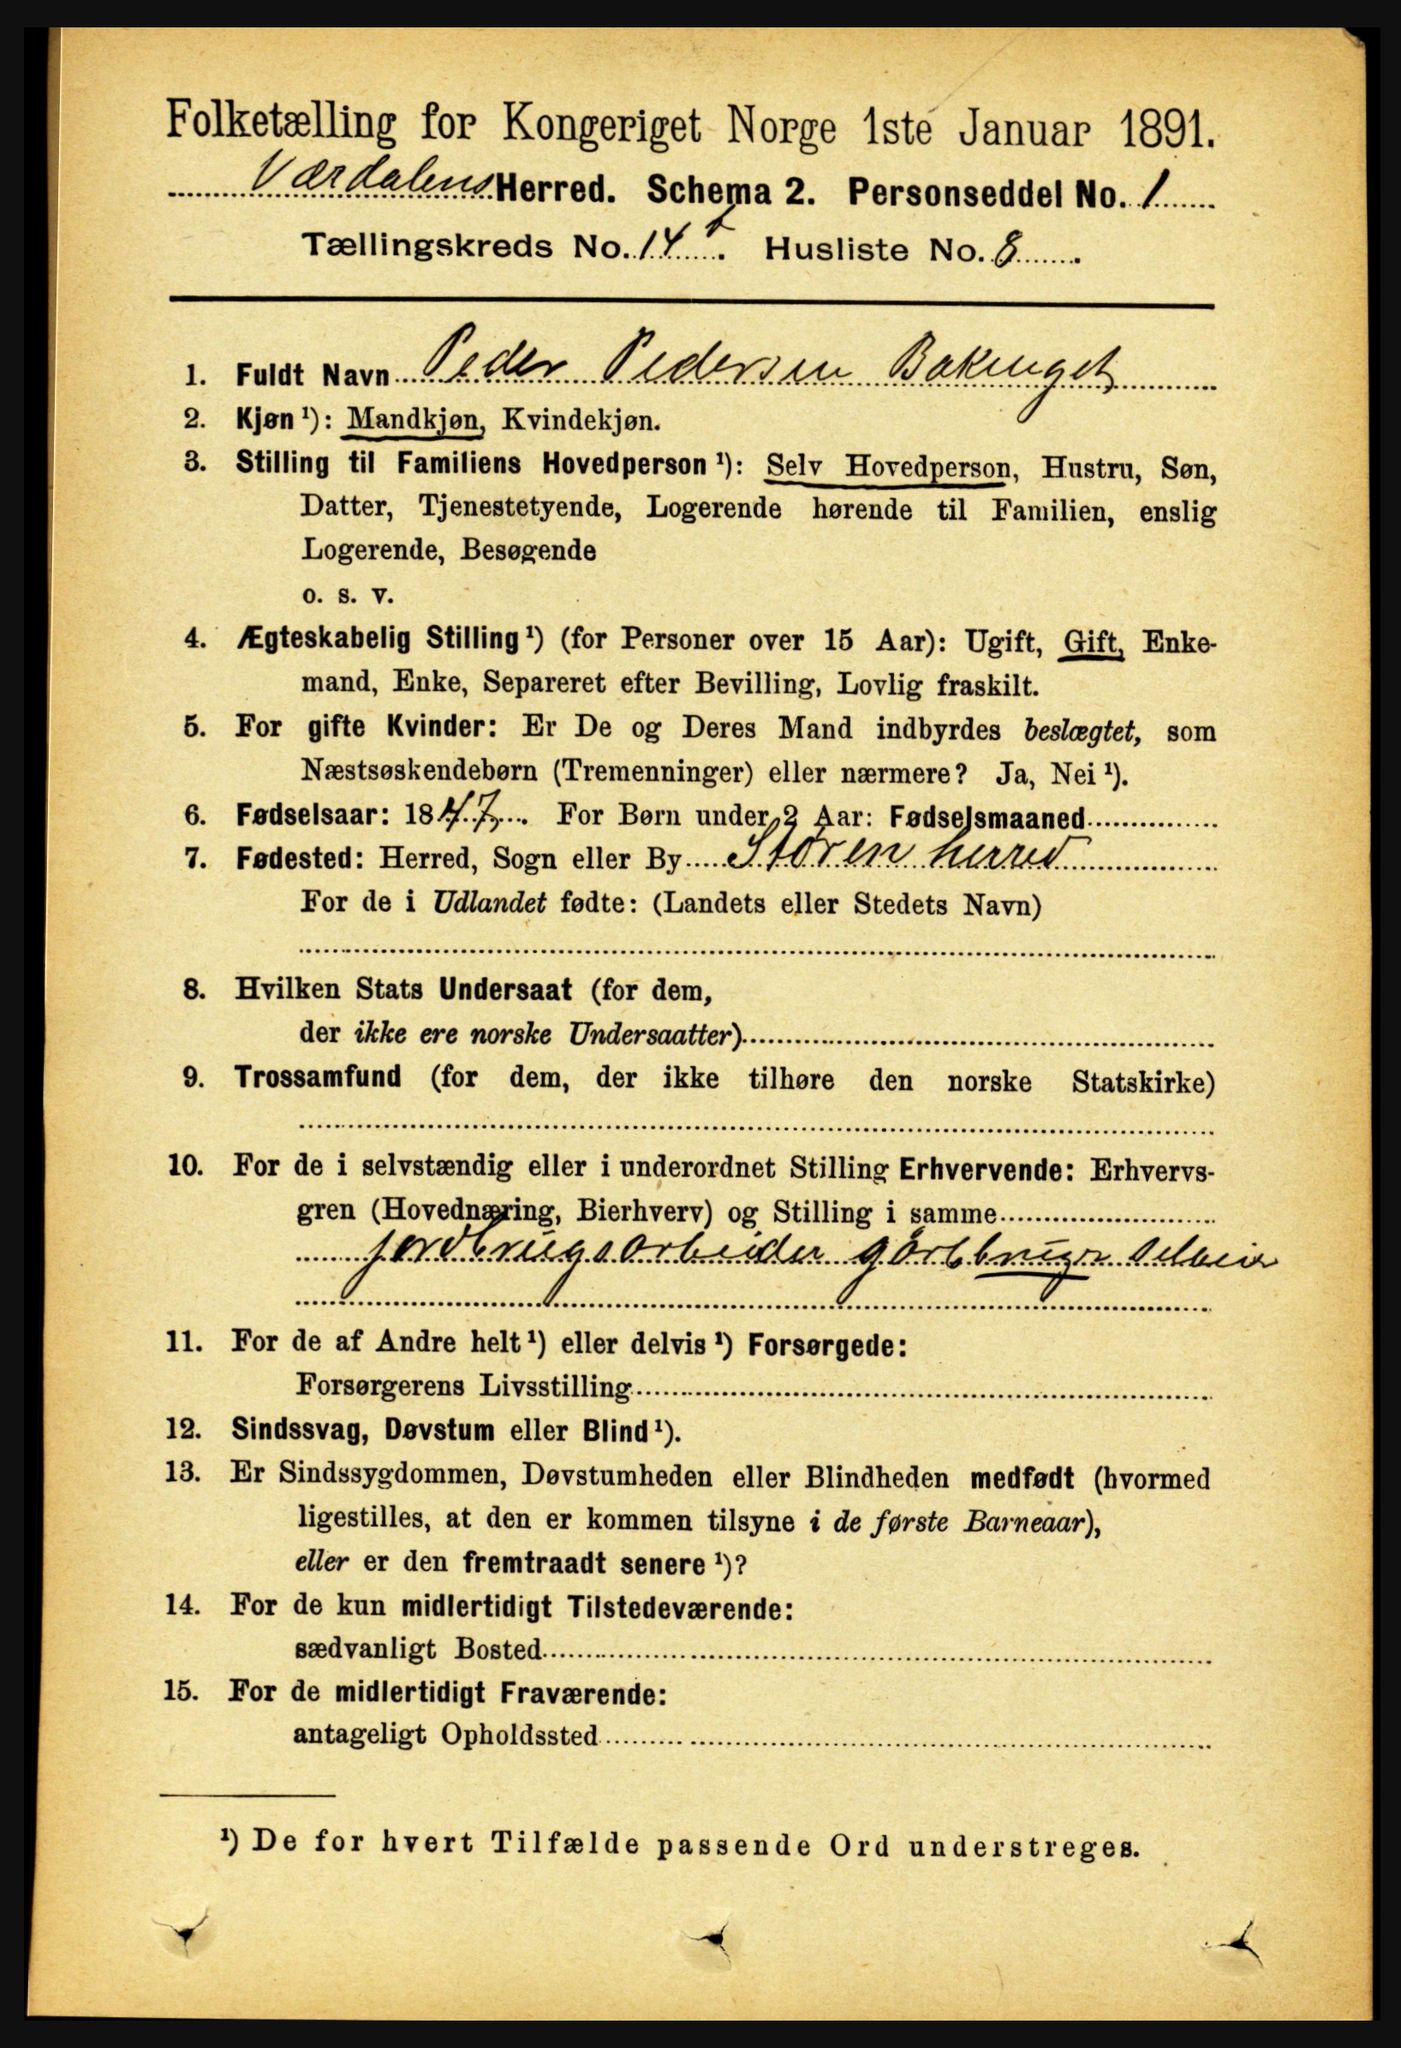 Folketælling for Kongeriget Norge 1ste Januar 1891.
Værdalens Herred. Schema 2. Personseddel No. 1
Tællingskreds No. 14 Husliste No. 8
1. Fuldt Navn Peder Pedersen Bakenget
2. Kjøn ¹): Mandkjøn, Kvindekjøn.
3. Stilling til Familiens Hovedperson ¹): Selv Hovedperson, Hustru, Søn,
Datter, Tjenestetyende, Logerende hørende til Familien, enslig
Logerende, Besøgende
o. s. v.
4. Ægteskabelig Stilling ¹) (for Personer over 15 Aar): Ugift, Gift, Enke-
mand, Enke, Separeret efter Bevilling, Lovlig fraskilt.
5. For gifte Kvinder: Er De og Deres Mand indbyrdes beslægtet, som
Næstsøskendebørn (Tremenninger) eller nærmere? Ja, Nei ¹).
6. Fødselsaar: 1847. For Børn under 2 Aar: Fødselsmaaned
7. Fødested: Herred, Sogn eller By Støren herred
For de i Udlandet fødte: (Landets eller Stedets Navn)
8. Hvilken Stats Undersaat (for dem,
der ikke ere norske Undersaatter)
9. Trossamfund (for dem, der ikke tilhøre den norske Statskirke)
10. For de i selvstændig eller i underordnet Stilling Erhvervende: Erhvervs-
gren (Hovednæring, Bierhverv) og Stilling i samme
jordbrugsarbeider gårbbruger selveier
11. For de af Andre helt ¹) eller delvis ¹) Forsørgede:
Forsørgerens Livsstilling
12. Sindssvag, Døvstum eller Blind ¹).
13. Er Sindssygdommen, Døvstumheden eller Blindheden medfødt (hvormed
ligestilles, at den er kommen tilsyne i de første Barneaar),
eller er den fremtraadt senere ¹)?
14. For de kun midlertidigt Tilstedeværende:
sædvanligt Bosted
15. For de midlertidigt Fraværende:
antageligt Opholdssted
¹) De for hvert Tilfælde passende Ord understreges.